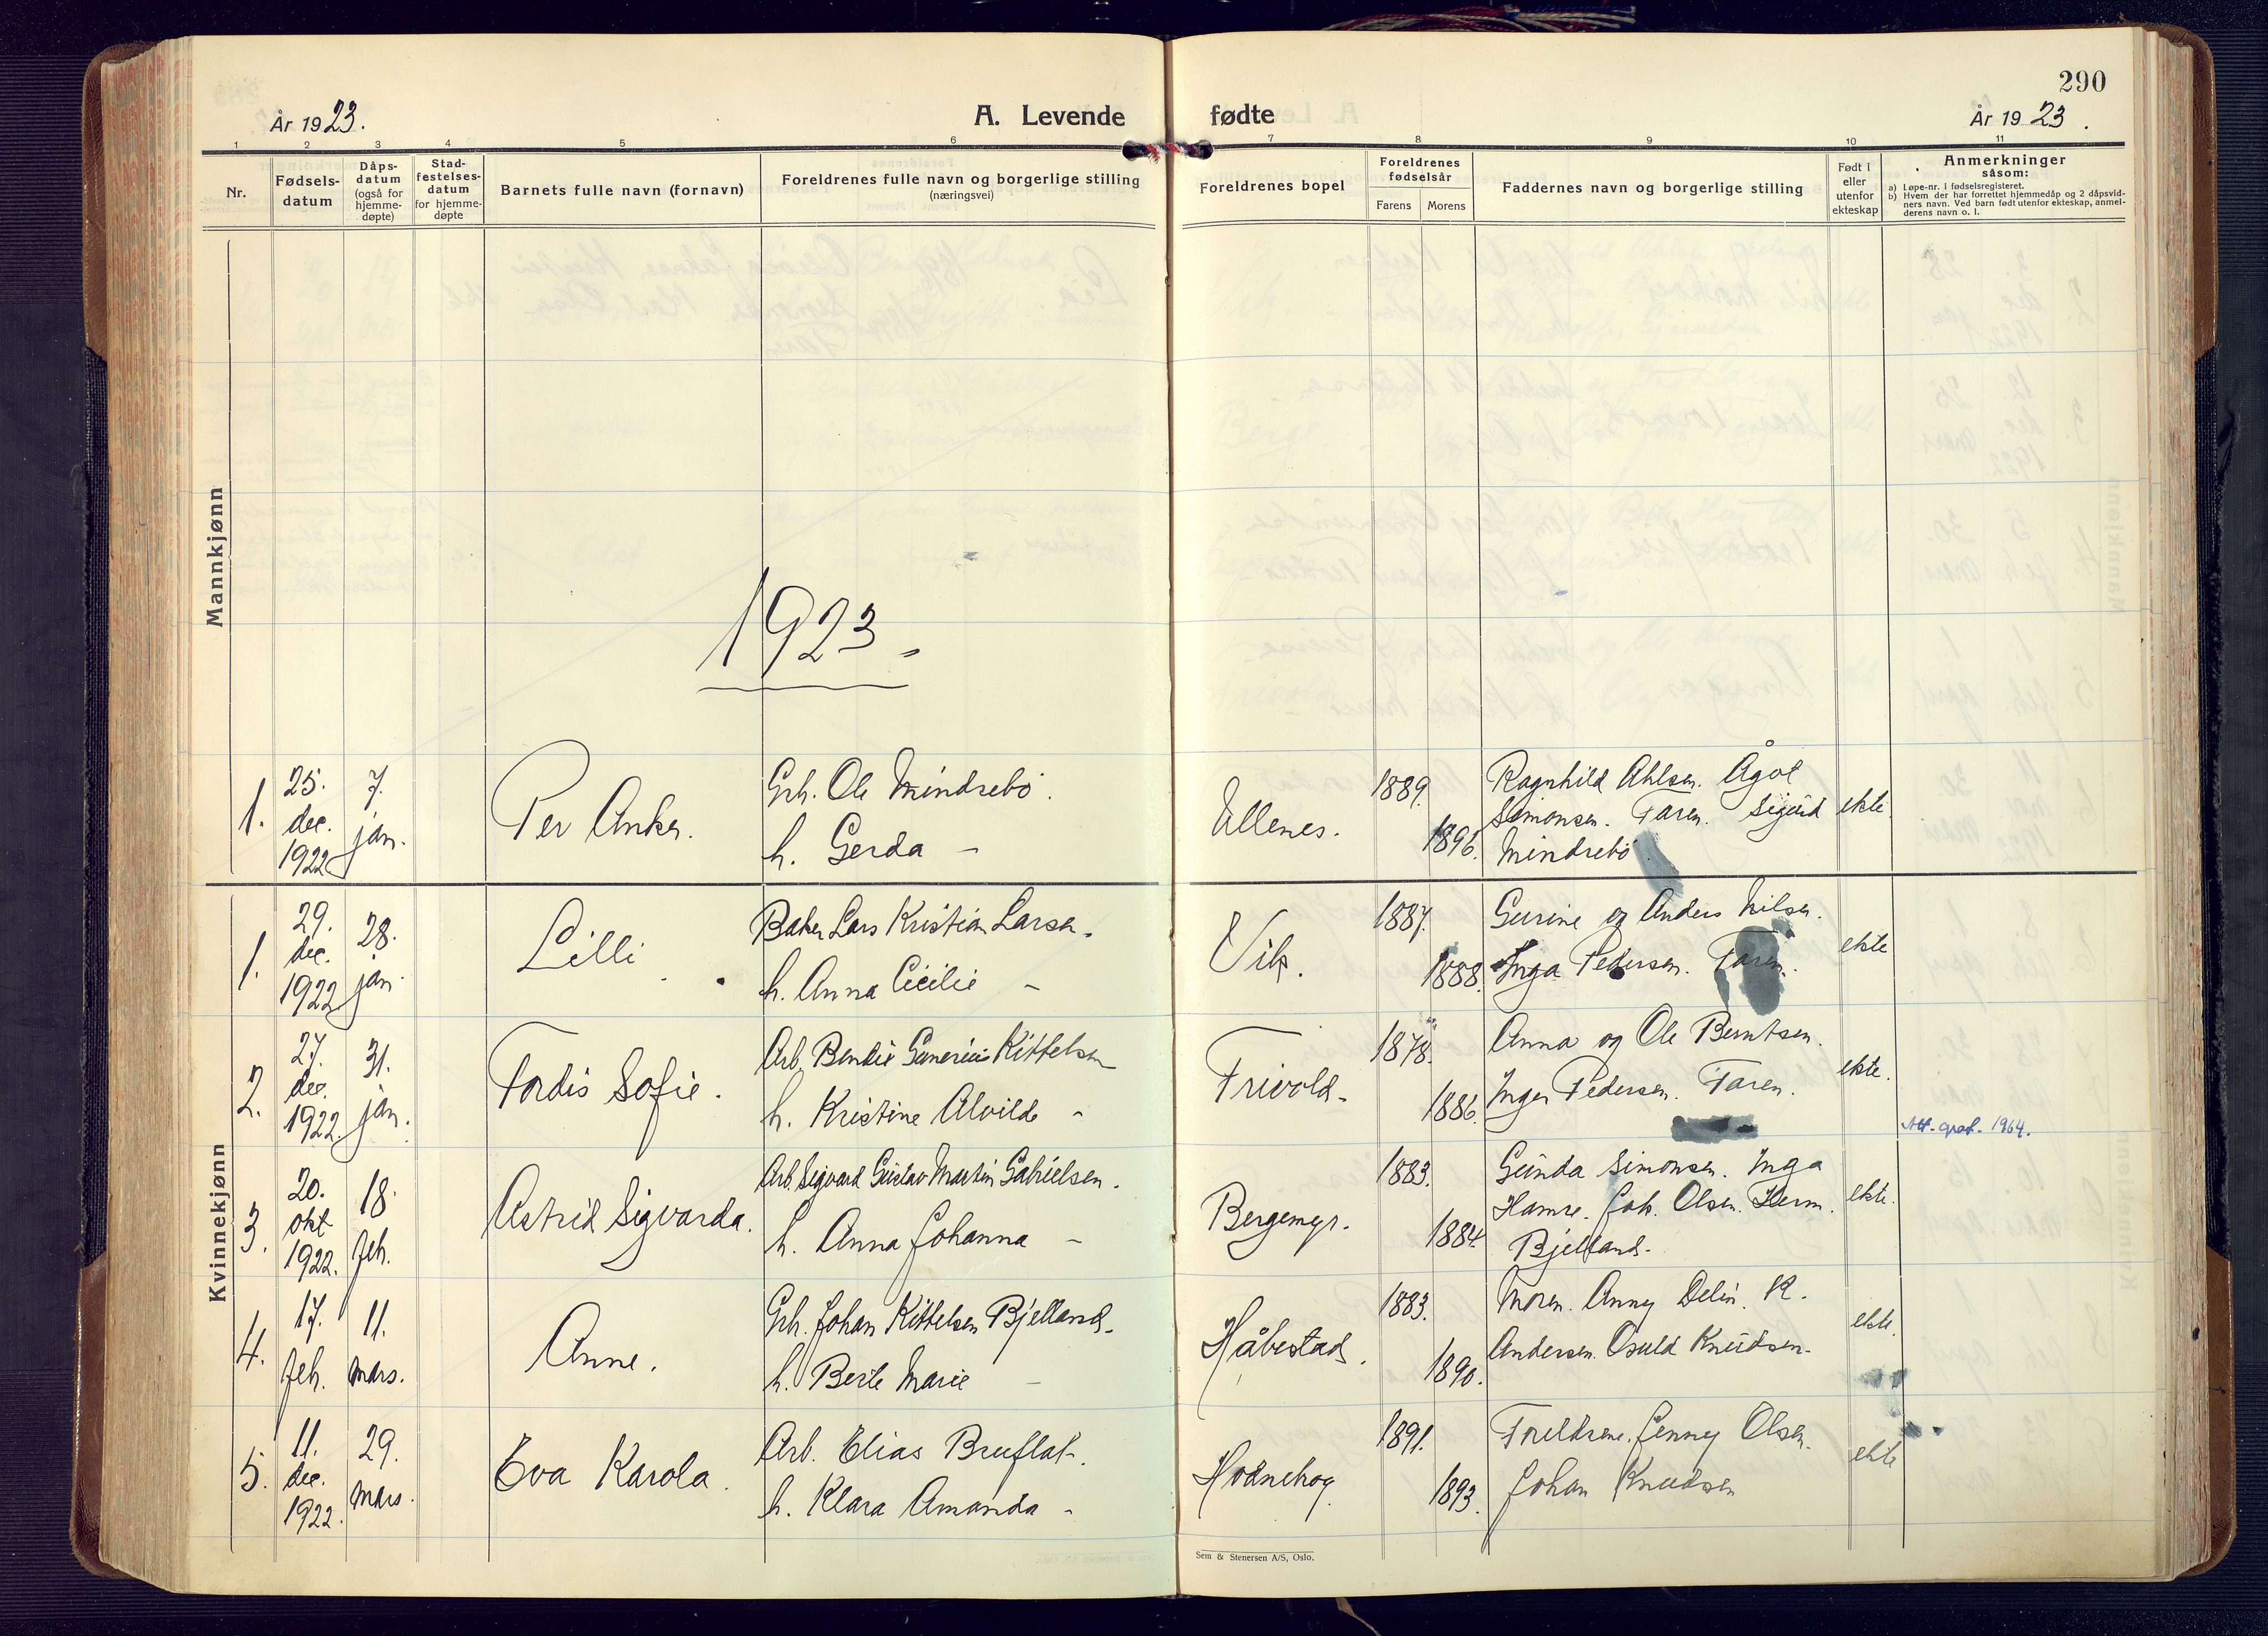 290
År 1923.
A. Levende fødte
År 1923.
1 2 3 4 5 6 7 8 9 10 11
Nr.
Fødsels-
datum
Dåps-
datum
(også for
hjemme-
døpte)
Stad-
festelses-
datum
for hjemme-
døpte
Barnets fulle navn (fornavn)
Foreldrenes fulle navn og borgerlige stilling
(næringsvei)
Foreldrenes bopel
Foreldrenes
fødselsår
Farens Morens
Faddernes navn og borgerlige stilling
Født i
eller
utenfor
ekteskap
Anmerkninger
såsom:
a) Løpe-nr. i fødselsregisteret.
b) Hvem der har forrettet hjemmedåp og 2 dåpsvid-
ners navn. Ved barn født utenfor ekteskap, anmel-
derens navn o. l.
Mannkjønn
1923
1.
25.
dec.
1922
7.
jan.
Per Anker.
Grb. Ole Mindrebö.
h. Gerda —
Ullenes.
1889.
1896.
Ragnhild Ahlsen. Ågot
Simonsen. Faren. Sigurd
Mindrebö
ekte
Kvinnekjønn
1.
29.
dec.
1922
28.
jan.
Lilli
Baker Lars Kristian Larsen.
h. Anna Cicilie —
Vik.
1887.
1888.
Gurine og Anders Nilsen.
Inga Pedersen. Faren.
ekte
2.
27.
dec.
1922.
31.
jan.
Tordis Sofie.
Arb. Bendix Gunerius Kittelsen
h. Kristine Alvilde -
Frivold.
1878.
1886.
Anna og Ole Berntsen.
Inger Pedersen. Faren.
ekte.
Att. grat. 1964.
3.
20.
okt
1922.
18.
feb.
Astrid Sigvarda.
Arb. Sigvard Gustav Martin Gabrielsen.
h. Anna Johanna —
Bergemyr.
1883.
1884.
Gunda Simonsen. Inga
Hamre. Joh. Olsen. Herm.
Bjelland.
ekte.
4.
17.
feb.
11.
mars.
Anne.
Grb. Johan Kittelsen Bjelland.
h. Berte Marie —
Håbestad.
1883.
1890.
Moren. Anny Delin. K.
Andersen. Osuld Knudsen.
ekte.
5.
11.
dec.
1922.
29.
mars.
Eva Karola.
Arb. Elias Bruflat.
h. Klara Amanda -
Hodnebrog
1891.
1893.
Foreldrene. Jenny Olsen.
Johan Knudsen
ekte
Sem & Stenersen A/S, Oslo.